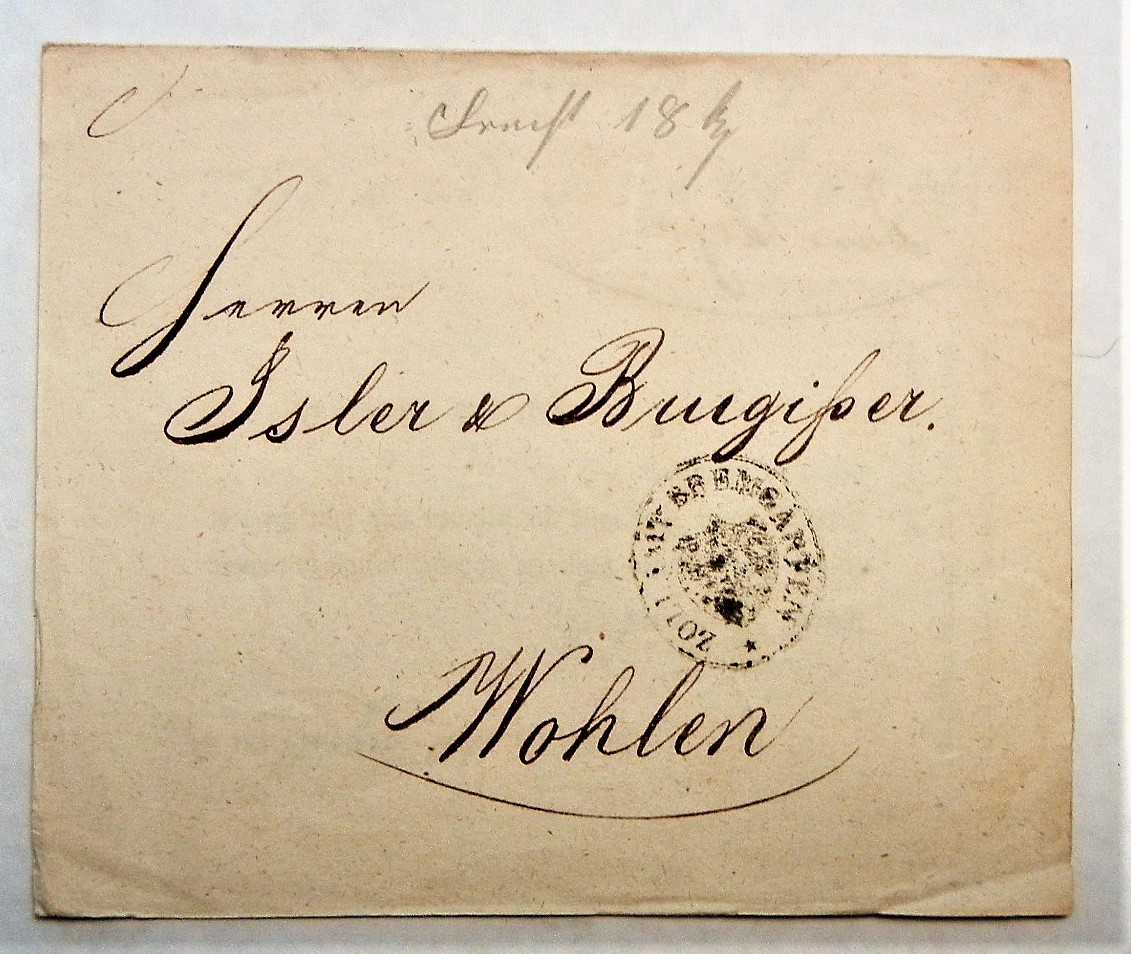 Fracht 18
Herren
Isler & Bruegißer.
ZOLLAMT BREMGARTEN
Wohlen